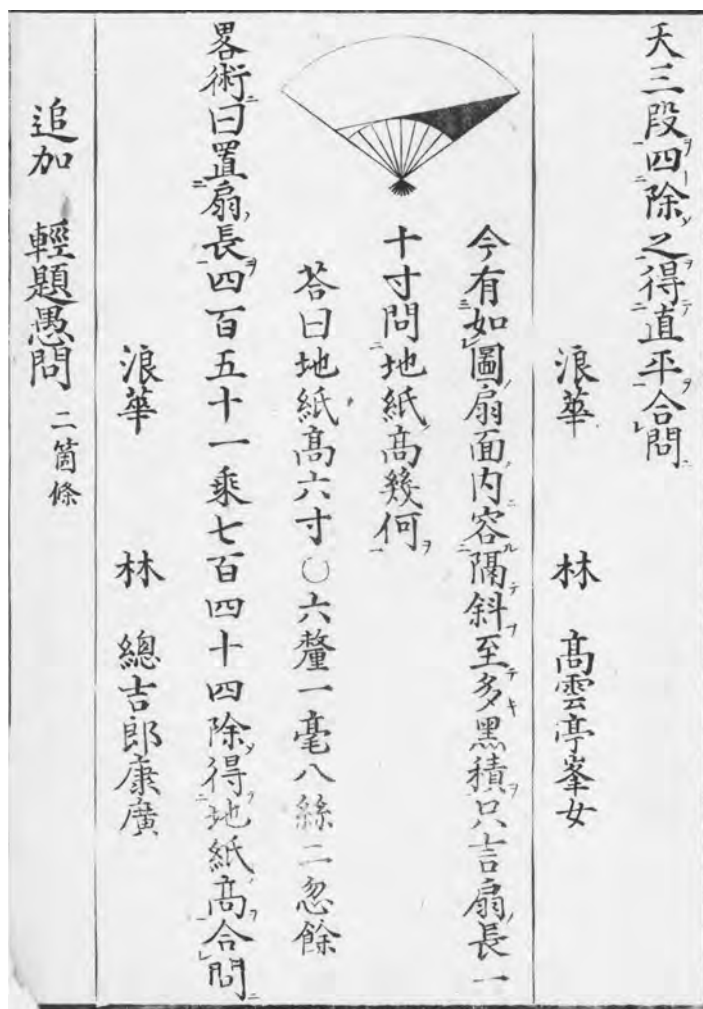 天三段四除之得直平合問
浪華　林　高雲亭峯女
今有如圖扇面内容隔斜至多黒積只言扇長一
十寸問地紙高幾何
荅曰地紙高六寸〇六釐一毫八絲二忽餘
畧術曰置扇長四百五十一乗七百四十四除得地紙高合問
浪華　林　總吉郎康廣
追加　輕題愚問　二箇條